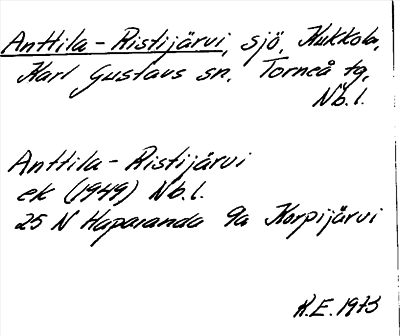 Anttila-Ristijärvi, sjö, Kukkola,
Karl Gustavs sn, Torneå tg,
Nb.l.
Anttila-Ristijärvi
ek (1949) Nb.l.
25 N Haparanda 9a Korpijärvi
K.E. 1973